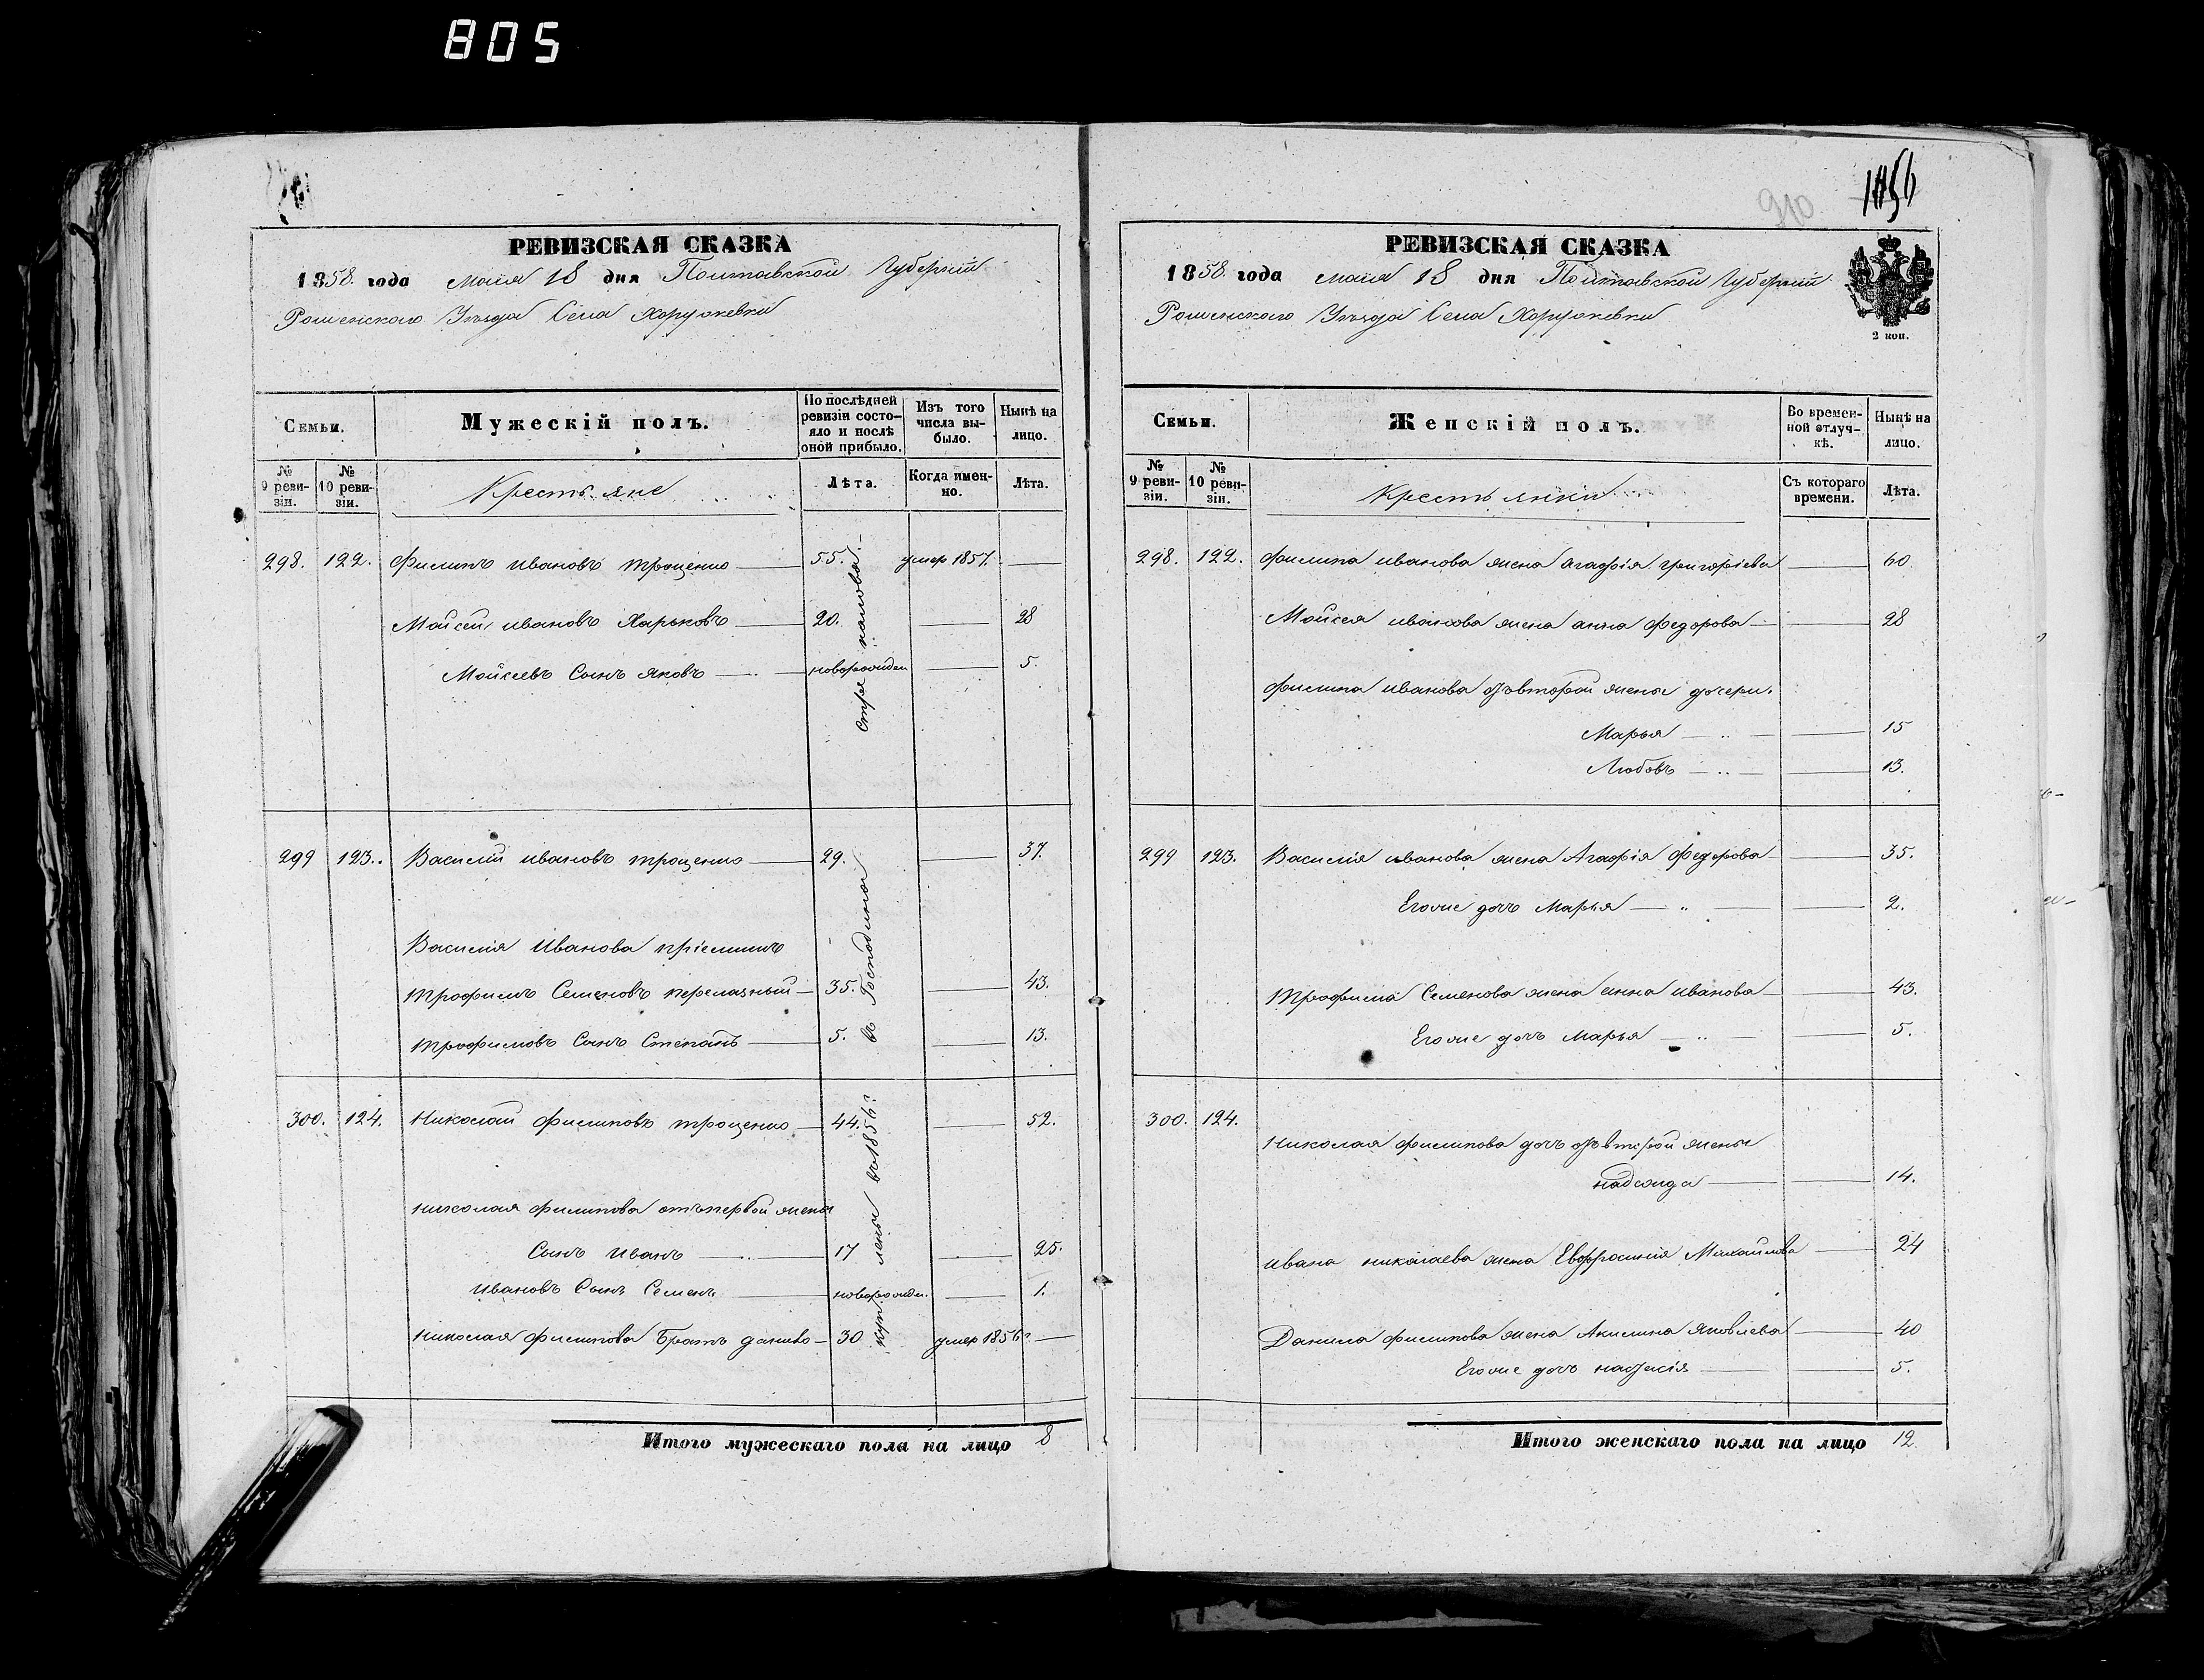 805
РЕВИЗСКАЯ СКАЗКА
1858. года маия 18 дня Полтавской Губернiи
Роменского Уѣзда Села Хоружевки
Семьи.
Мужескій полъ.
По послѣдней ревизіи состо-
яло и послѣ оной прибыло.
Изъ того числа вы-
было.
Нынѣ на лицо.
№ 9 реви-
зіи.
№ 10 реви-
зіи.
Крестьяне
Лѣта.
Когда имен-
но.
Лѣта.
298. 122. Филипъ ивановъ троценко 55. умер 1857.
Мойсей ивановъ Харьковъ 20. 28
Мойсеевъ Сынъ яковъ новорожден 5.
299 123. Василий ивановъ троценко 29. 37.
Василия Иванова пріемишъ
трофимъ Семеновъ перелазный 35. 43.
трофимовъ Сынъ Степанъ 5. 13.
300. 124. Николай филиповъ троценко 44. 52.
николая филипова отъ первой жены
Сынъ Иванъ 17 25.
Ивановъ Сынъ Семенъ новорожден. 1.
николая филипова Братъ данило 30 умер 1856г
куплены во 1856г
въ Господины
Итого мужескаго пола на лицо 8
210
1156
РЕВИЗСКАЯ СКАЗКА
1858. года маия 18 дня Полтавской Губернiи
Роменского Уѣзда Села Хоружевки
2 коп.
Семьи.
Женскій полъ.
Во времен-
ной отлуч-
кѣ.
Нынѣ на лицо.
№ 9 реви-
зіи.
№ 10 реви-
зіи.
Крестьянки
Съ котораго времени.
Лѣта.
298. 122. филипа иванова жена агафія григоріева 60.
Мойсея иванова жена анна федорова 28
филипа иванова отъ второй жены дочери.
Марья 15
Любовь 13.
299 123. Василія иванова жена Агафія федорова 35.
Егоже дочь Марья 2.
трофима Семенова жена анна иванова 43.
Егоже дочь Марья 5.
300. 124.
николая филипова дочь отъ второй жены
надежда 14.
ивана николаева жена Евфросинія Михайлова 24
Данила филипова жена Акилина яковлева 40
Егоже дочь настасія 5.
Итого женскаго пола на лицо 12